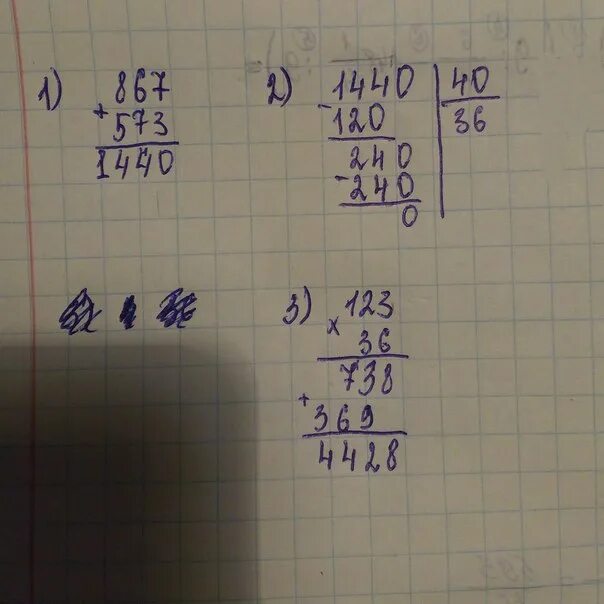 1) 867
+
573
1440
2) 1440 | 40
- 120 | 36
240
- 240
0
3) 123
x
36
738
+
369
4428